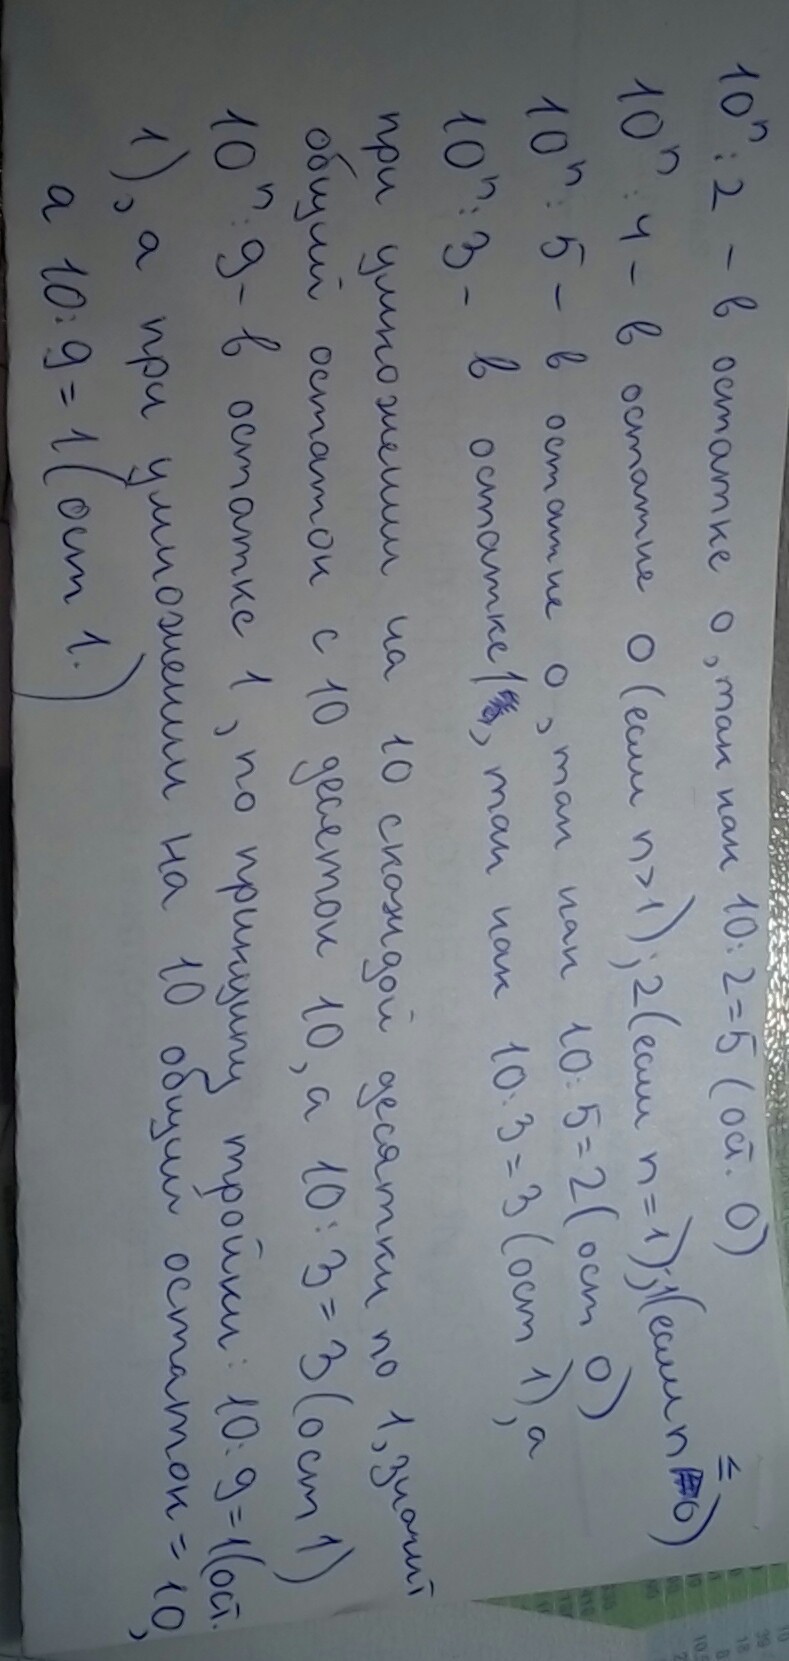 10ⁿ:2 - в остатке 0, так как 10:2=5 (ост. 0)
10ⁿ:4 - в остатке 0 (если n>1); 2 (если n=1); 1 (если n=0)
10ⁿ:5 - в остатке 0, так как 10:5=2 (ост 0)
10ⁿ:3 - в остатке 1, так как 10:3=3 (ост 1), а
при умножении на 10 скаждой десятки по 1, значит
общий остаток с 10 десяток 10, а 10:3=3 (ост 1)
10ⁿ:9 - в остатке 1, по принципу тройки: 10:9=1 (ост.
1), а при умножении на 10 общий остаток = 10,
а 10:9=1 (ост 1.)